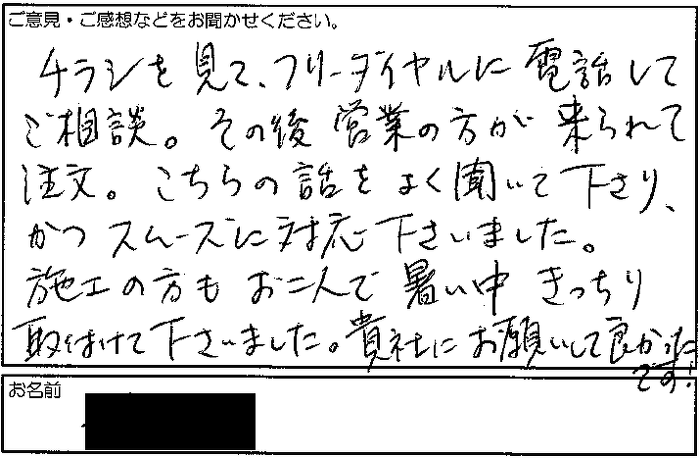 ご意見・ご感想などをお聞かせください。
チラシを見て、フリーダイヤルに電話して
ご相談。その後営業の方が来られて
注文。こちらの話をよく聞いて下さり、
かつスムーズに対応下さいました。
施工の方もお二人で暑い中きっちり
取付けて下さいました。貴社にお願いして良かった
です!
お名前